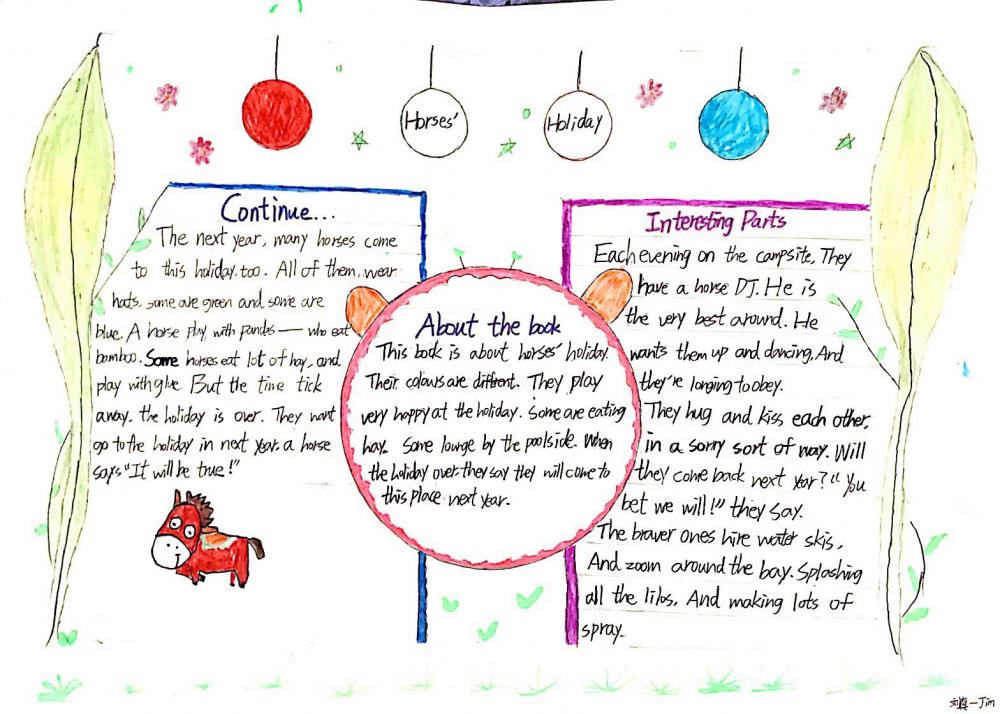 Horses'
Holiday
Continue...
The next year, many horses come
to this holiday, too. All of them, wear
hats, some are green and some are
blue. A horse play with pandas — who eat
bamboo. Some horses eat lot of hay, and
play with glue. But the time tick
away, the holiday is over. They want
go to the holiday in next year. a horse
says "It will be true!"
About the book
This book is about horses' holiday.
Their colours are diffrent. They play
very happy at the holiday. Some are eating
hay. Some lounge by the poolside. When
the holiday over, they say they will come to
this place next year.
Interesting Parts
Each evening on the campsite, They
have a horse DJ. He is
the very best around. He
wants them up and dancing, And
they're longing to obey.
They hug and kiss each other,
in a sorry sort of way. Will
they come back next year? "You
bet we will!" they say.
The braver ones hire water skis,
And zoom around the bay. Splashing
all the lilos, And making lots of
spray.
一Jim